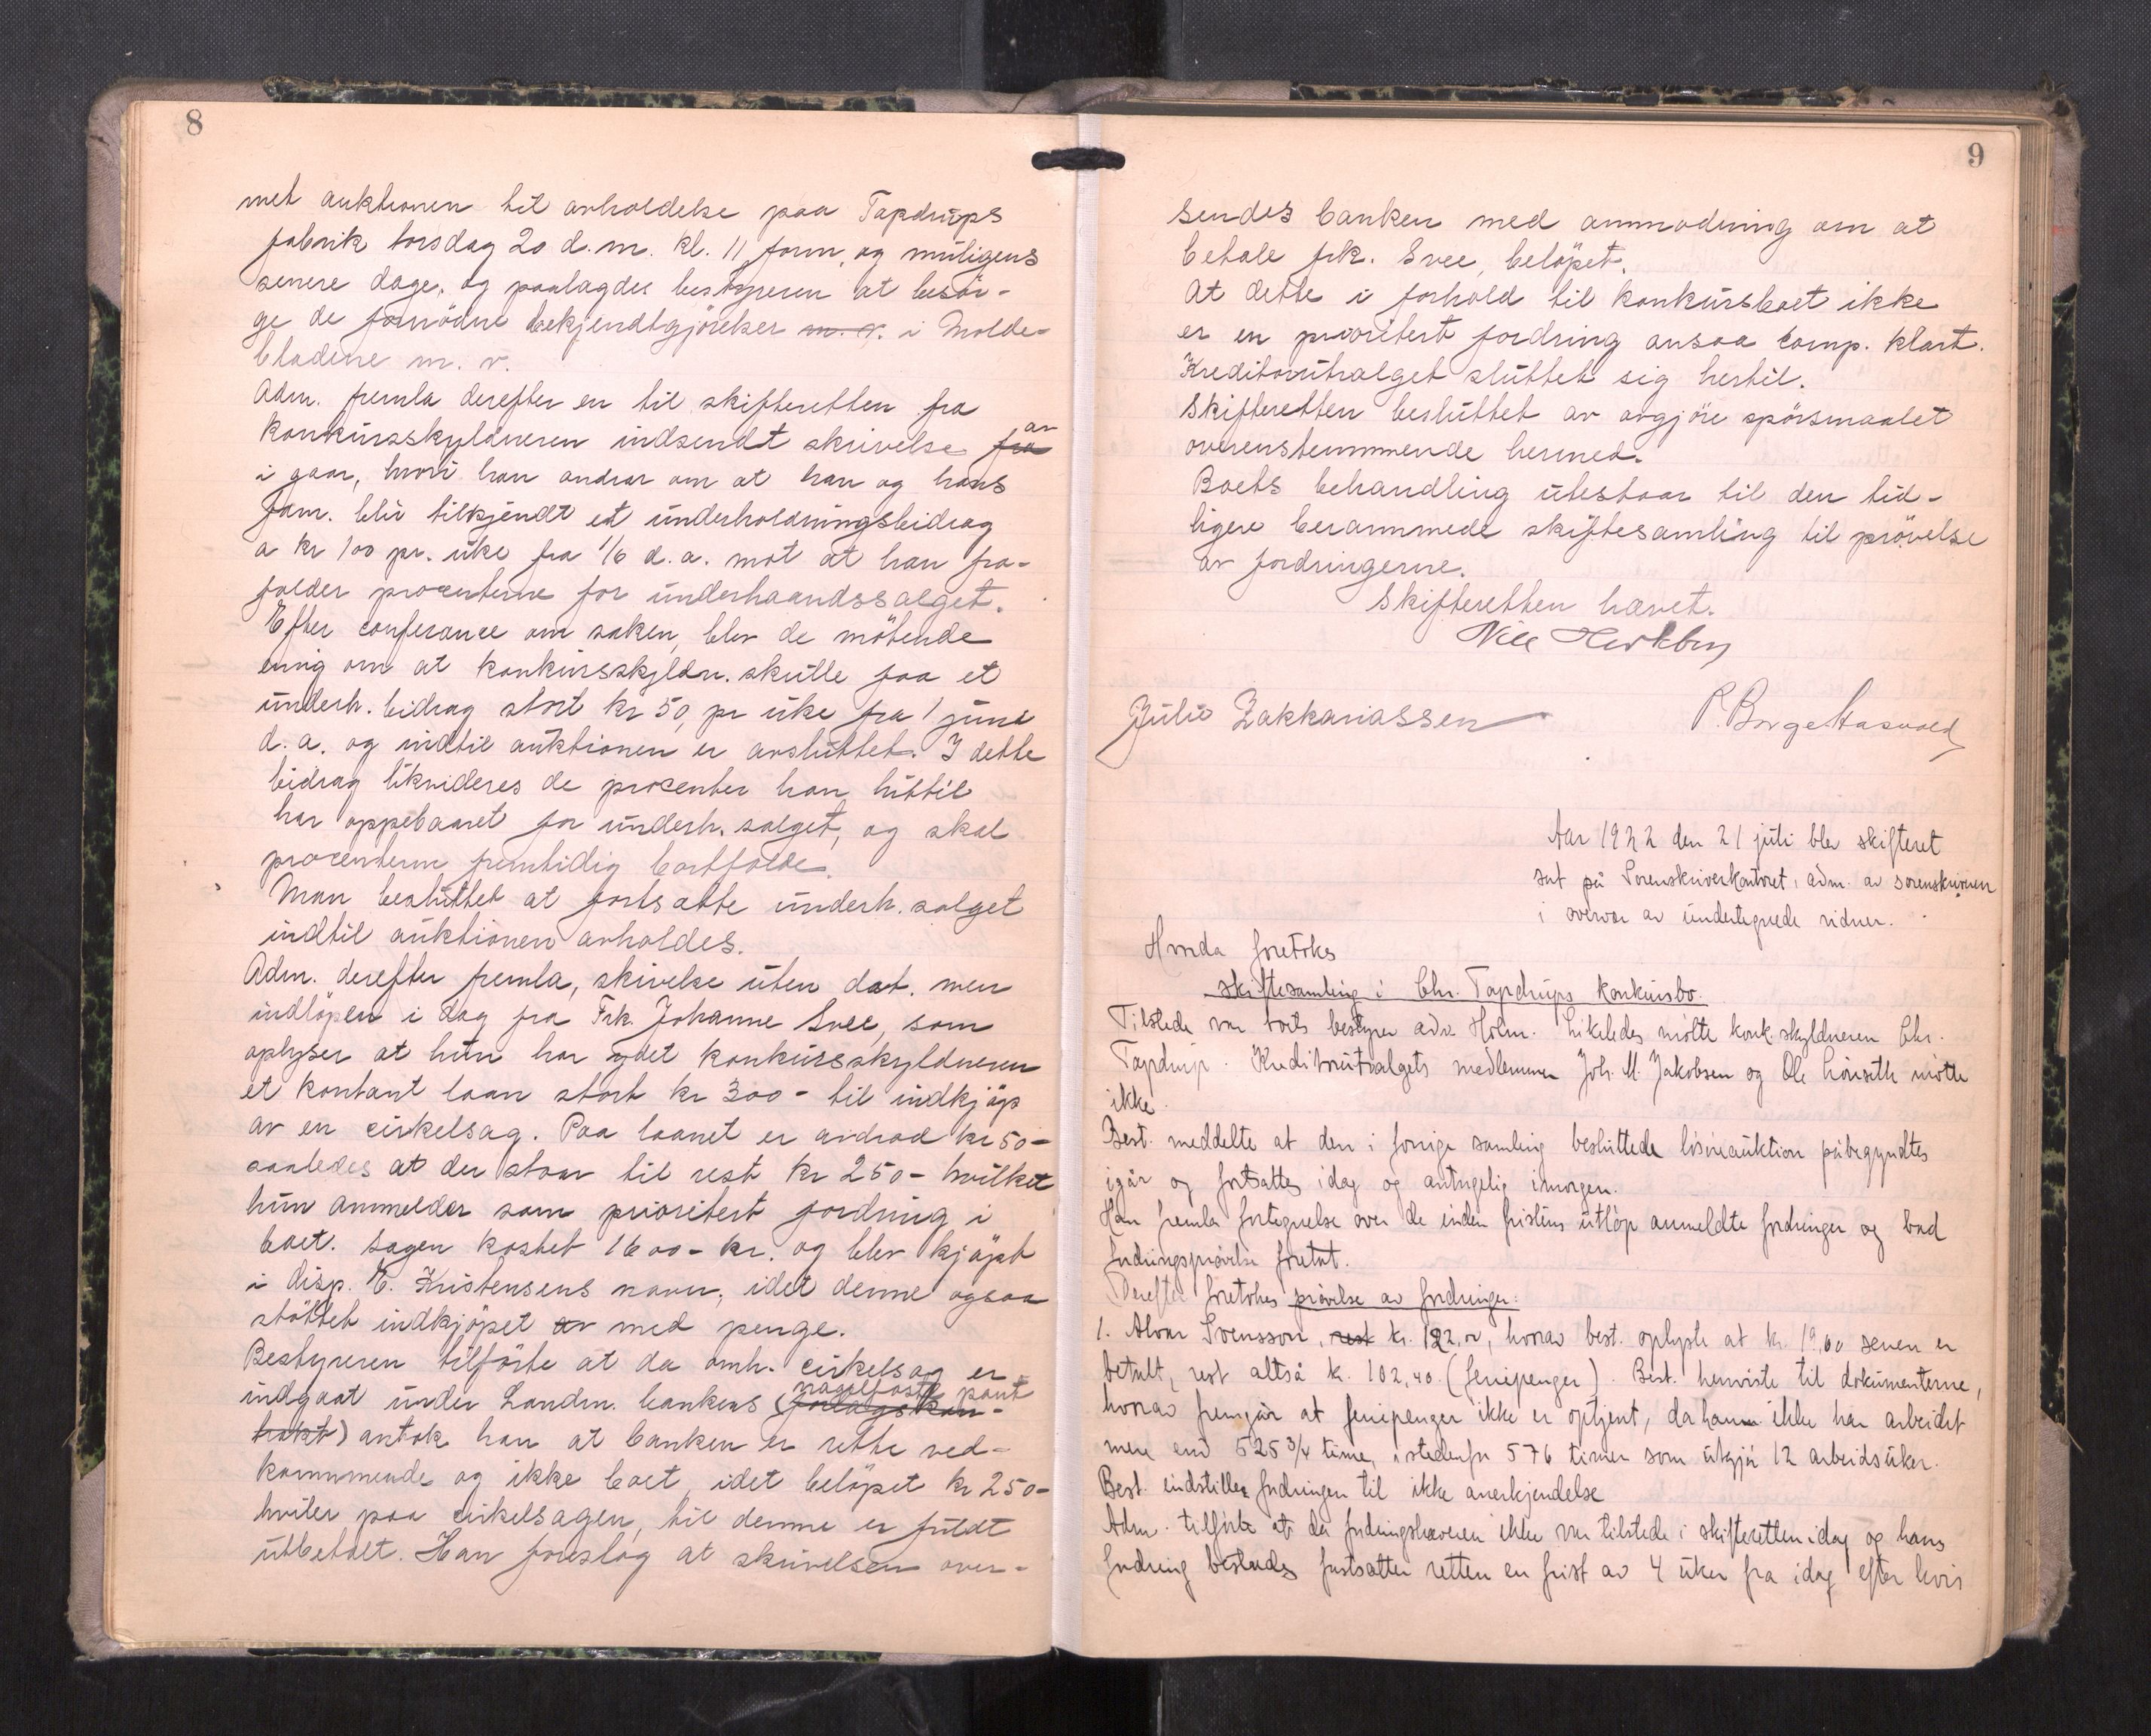 8
met auktionen til avholdelse paa Tapdrups
fabrik torsdag 20 d.m. kl. 11 form. og muligens
senere dage, og paalagdes bestyreren at besör-
ge de fornödne bekjendtgjörelser m. v. i Molde-
bladene m. v.
Adm. fremla derefter en til skifteretten fra
konkursskyldneren indsendt skrivelse fra av
i gaar, hvori han andrar om at han og hans
fam. blir tilkjendt et underholdningsbidrag
a kr 100 pr. uke fra 1/6 d.a. mot at han fra-
falder procenterne for underhaandssalget.
Efter conferance om saken, blev de mötende
enig om at konkursskyldn. skulle faa et
underh. bidrag stort kr 50, pr uke fra 1 juni
d.a. og indtil auktionen er avsluttet. I dette
bidrag likvideres de procenter han hittil
har oppebaaret for underh. salget, og skal
procenterne fremtidig bortfalde.
Man besluttet at fortsatte underh. salget
indtil auktionen avholdes.
Adm. derefter fremla, skrivelse uten dat. men
indlöpen i dag fra Frk. Johanne Svee, som
oplyser at hun har ydet konkursskyldneren
et kontant laan stort kr 300- til indkjöp
av en cirkelsag. Paa laanet er avdrad kr 50-
saaledes at der staar til rest kr 250- hvilket
hun anmelder som prioritert fordring i
boet. Sagen kostet 1600- kr. og blev kjöpt
i disp. E. Kristensens navn, idet denne ogsaa
stöttet indkjöpet av med penge.
Bestyreren tilförte at da omh. cirkelsag er
indgaat under Landm. bankens (forlagskon- pant
trakt) antok han at banken er rette ved-
kommende og ikke boet, idet belöpet kr 250-
hviler paa cirkelsagen, til denne er fuldt
utbetalt. Han foreslog at skrivelsen over-
9
sendes banken med anmodning om at
betale frk. Svee, belöpet.
At dette i forhold til konkursboet ikke
er en prioritert fordring ansaa comp. klart.
Kreditorutvalget sluttet sig hertil.
Skifteretten besluttet av avgjöre spörsmaalet
overenstemmende hermed.
Boets behandling utestaar til den tid-
ligere berammede skiftesamling til prövelse
av fordringerne.
Skifteretten hævet.
Julius Zakkariassen
Aar 1922 den 21 juli blev skifteret
sat på Sorenskriverkontoret, adm. av sorenskriveren
i overvær av undertegnede vidner.
Hvorda foretokes
skiftesamling i Chr. Tapdrups konkursbo.
Tilstede var boets bestyrer adv. Holm. Likeledes mötte konk. skyldneren Chr.
Tapdrup. Kreditorutvalgets medlemmer Joh. M. Jakobsen og Ole Lönseth mötte
ikke.
Best. meddelte at den i forrige samling besluttede lösöreauktion påbegyndtes
igår og fortsattes idag og antagelig imorgen.
Han fremla fortegnelse over de inden fristens utlöp anmeldte fordringer og bad
fordringsprövelse foretat.
Derefter foretokes prövelse av fordringer:
1. Alvar Svensson, rest kr. 122,00, hvorav best. oplyste at kr. 19,60 senere er
betalt, rest altså kr. 102,40. (feriepenger). Best. henviste til dokumenterne,
hvorav fremgår at feriepenger ikke er optjent, da han ikke har arbeidet
mere end 525 3/4 time, istedenfor 576 timer som utgjör 12 arbeidsuker.
Best. indstiller fordringen til ikke anerkjendelse
Adm. tilförte at da fordringshaveren ikke var tilstede i skifteretten idag og hans
fordring bestrides fastsatter retten en frist av 4 uker fra idag efter hvis